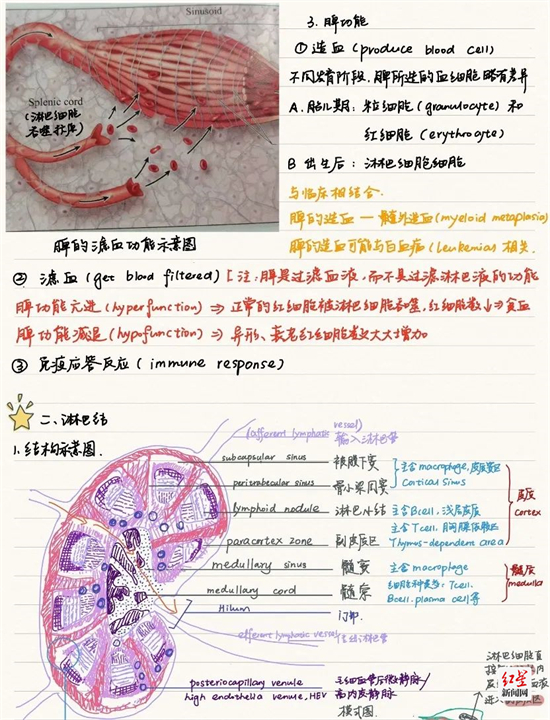 Sinusoid
Splenic cord
(淋巴细胞
脾的滤血功能示意图
3. 脾功能
① 造血 (produce blood cell)
不同发育阶段,脾所造的血细胞略有差异
A. 胎儿期: 粒细胞 (granulocyte) 和
红细胞 (erythrocyte)
B 出生后: 淋巴细胞细胞
与临床相结合.
脾的造血 — 髓外造血 (myeloid metaplasia)
脾的造血可能与白血病 (Leukemia) 相关.
② 滤血 (get blood filtered) [注: 脾是过滤血液, 而不是过滤淋巴液的功能
脾功能亢进 (hyperfunction) ⇒ 正常的红细胞被淋巴细胞吞噬, 红细胞数↓ ⇒ 贫血
脾功能减退 (hypofunction) ⇒ 异形、衰老红细胞数大大增加
③ 免疫应答反应 ( immune response)
二、淋巴结
1. 结构示意图.
(afferent lymphatic vessel)
输入淋巴管
subcapsular sinus 被膜下窦 主含 macrophage, 皮质窦
peritrabecular sinus 骨小梁周窦 Cortical Sinus
lymphoid nodule 淋巴小结 主含 Bcell, 浅层皮质
皮质
cortex
paracortex zone 副皮质区 主含 T cell, 胸腺依赖区
Thymus-dependent area
medullary sinus 髓窦 主含 macrophage
髓质
medulla
medullary cord 髓索 Tcell.
Bcell. plasma cell等
Hilum 门部.
efferent lymphatic vessel 输出淋巴管
posteriocapillary venule 毛细血管后微静脉/
high endothelia venule, HEV 高内皮静脉
模式图
红星
新闻网